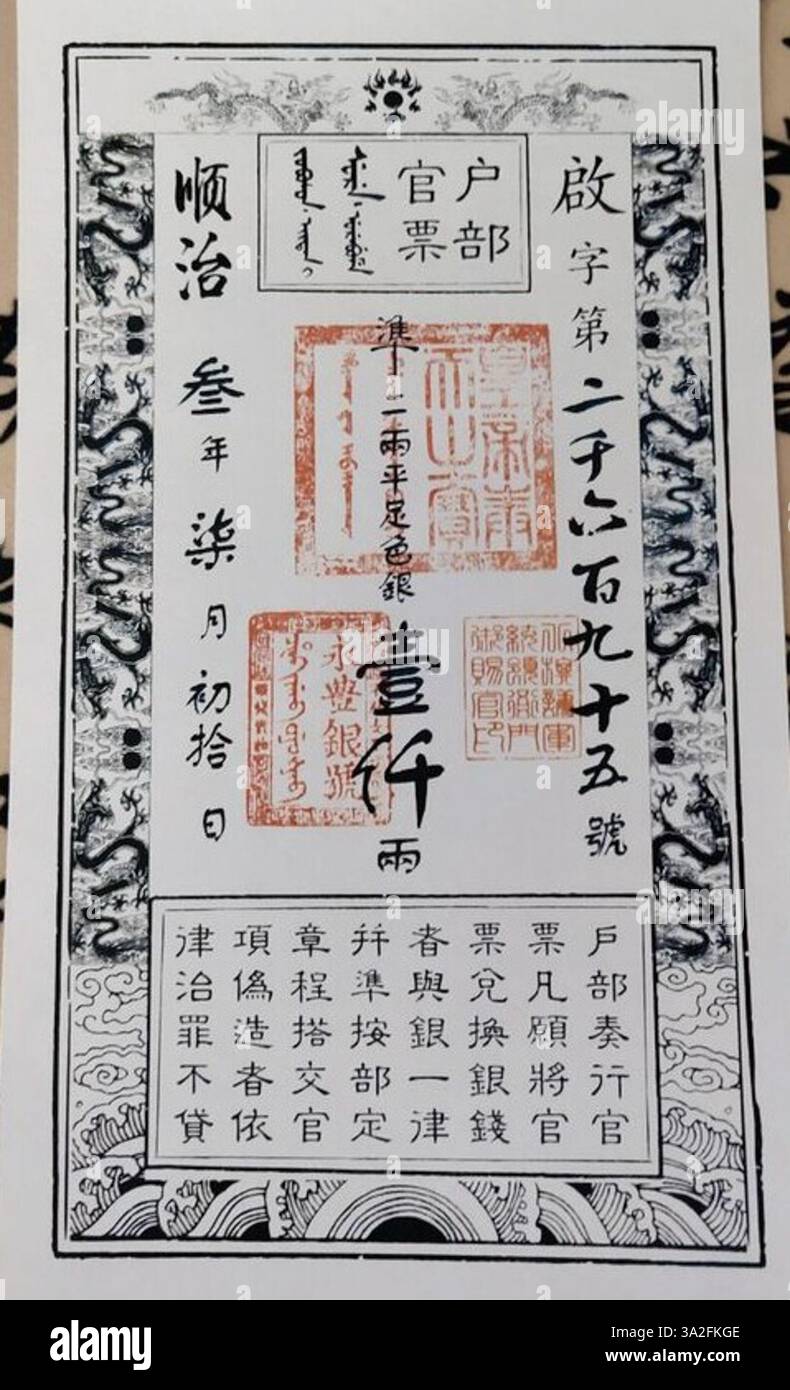 户部
官票
啟字第二千六百九十五號
準二兩平足色銀壹仟兩
顺治叁年柒月初拾日
皇帝奉
天之寶
永豐銀號
御賜官印
戶部奏行官
票凡願將官
票兌換銀錢
者與銀一律
并準按部定
章程搭交官
項偽造者依
律治罪不貸
alamy
alamy
Image ID: 3A2FKGE
www.alamy.com